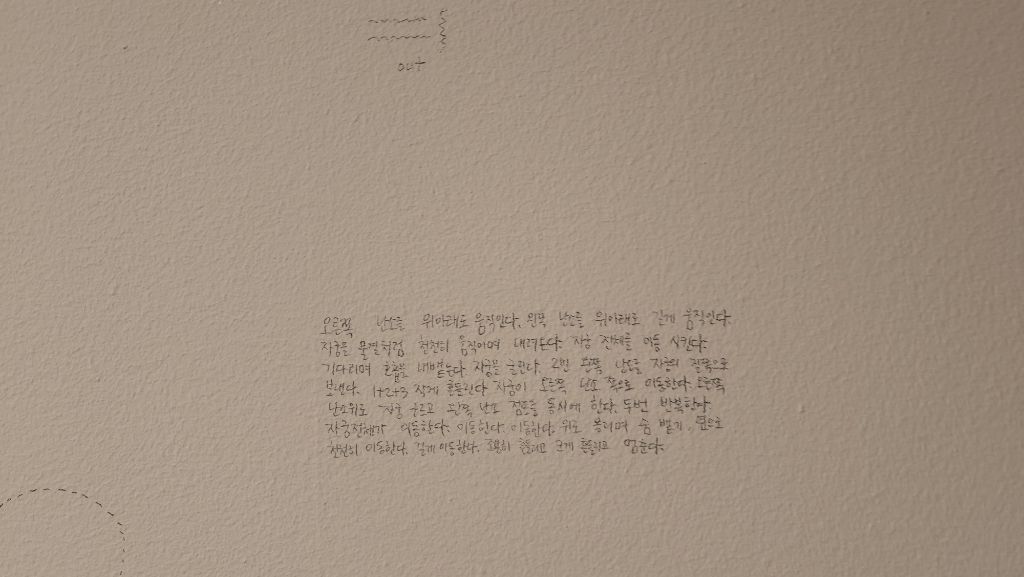 out
오른쪽 난소를 위아래로 움직인다. 왼쪽 난소를 위아래로 길게 움직인다.
자궁을 물결처럼 천천히 움직이며 내려온다. 자궁 전체를 이동 시킨다.
기다리며 호흡을 내뱉는다 자궁을 굴린다. 2번 왼쪽 난소를 자궁의 왼쪽으로
보낸다. 1+2+3 작게 흔들린다 자궁이 오른쪽 난소 쪽으로 이동한다. 오른쪽
난소위로 자궁 구르고 왼쪽 난소 점프를 동시에 한다. 두번 반복한다.
자궁전체가 이동한다. 이동한다. 이동한다. 위로 올리며 숨 뱉기, 옆으로
천천히 이동한다. 길게 이동한다. 조용히 흔들리고 크게 흔들리고 멈춘다.